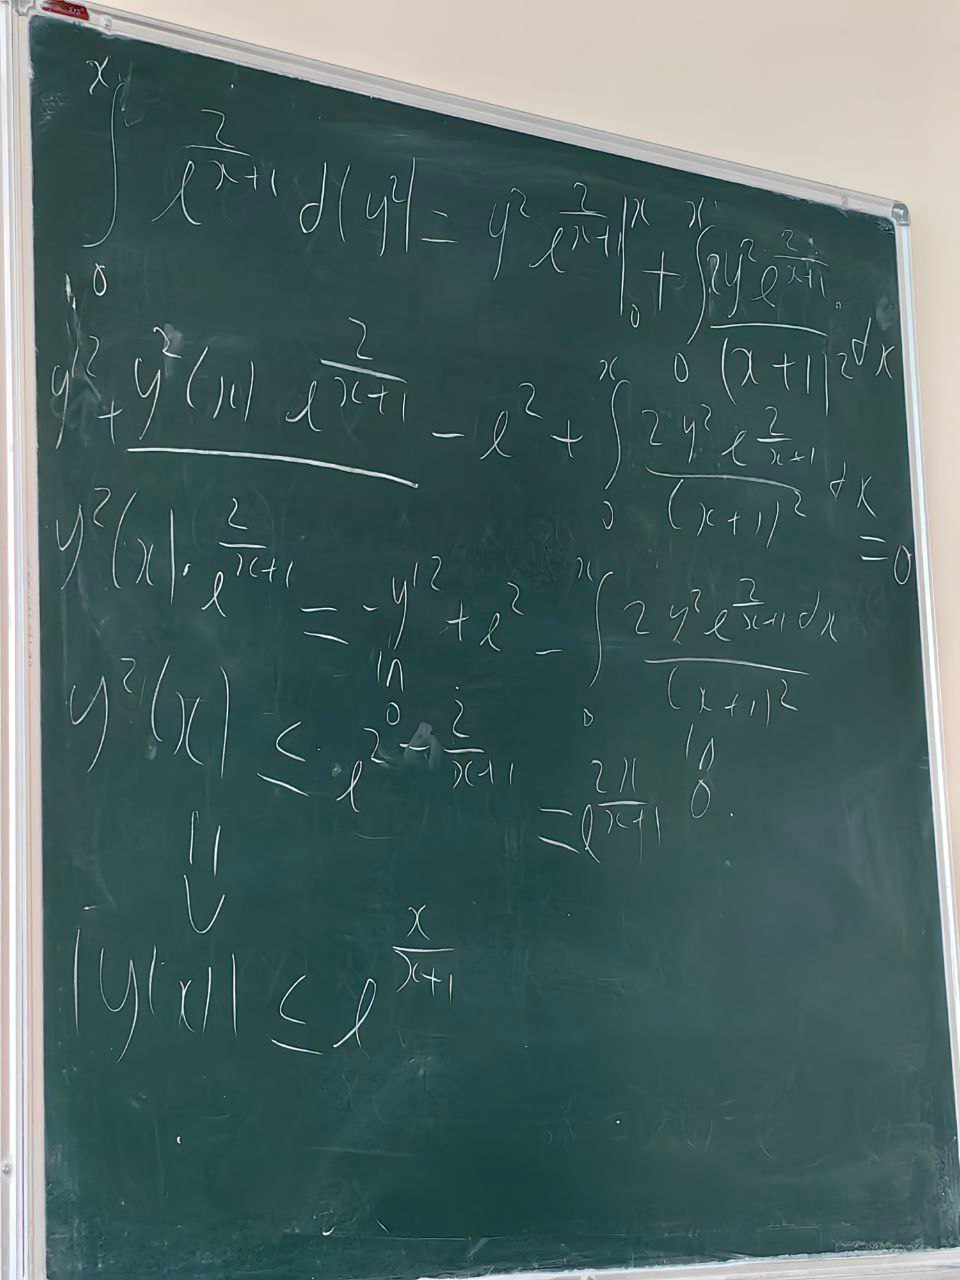 ∫_0^x e^{2/(x+1)} d(y²) = y² e^{2/(x+1)} |_0^x + ∫_0^x (2y² e^{2/(x+1)})/(x+1)² dx
y'² + y²(x) e^{2/(x+1)} - e² + ∫_0^x (2y² e^{2/(x+1)})/(x+1)² dx = 0
y²(x) · e^{2/(x+1)} = -y'² + e² - ∫_0^x (2y² e^{2/(x+1)} dx)/(x+1)²
y²(x) ≤ e^{2 - 2/(x+1)} = e^{2x/(x+1)}
⇓
|y(x)| ≤ e^{x/(x+1)}